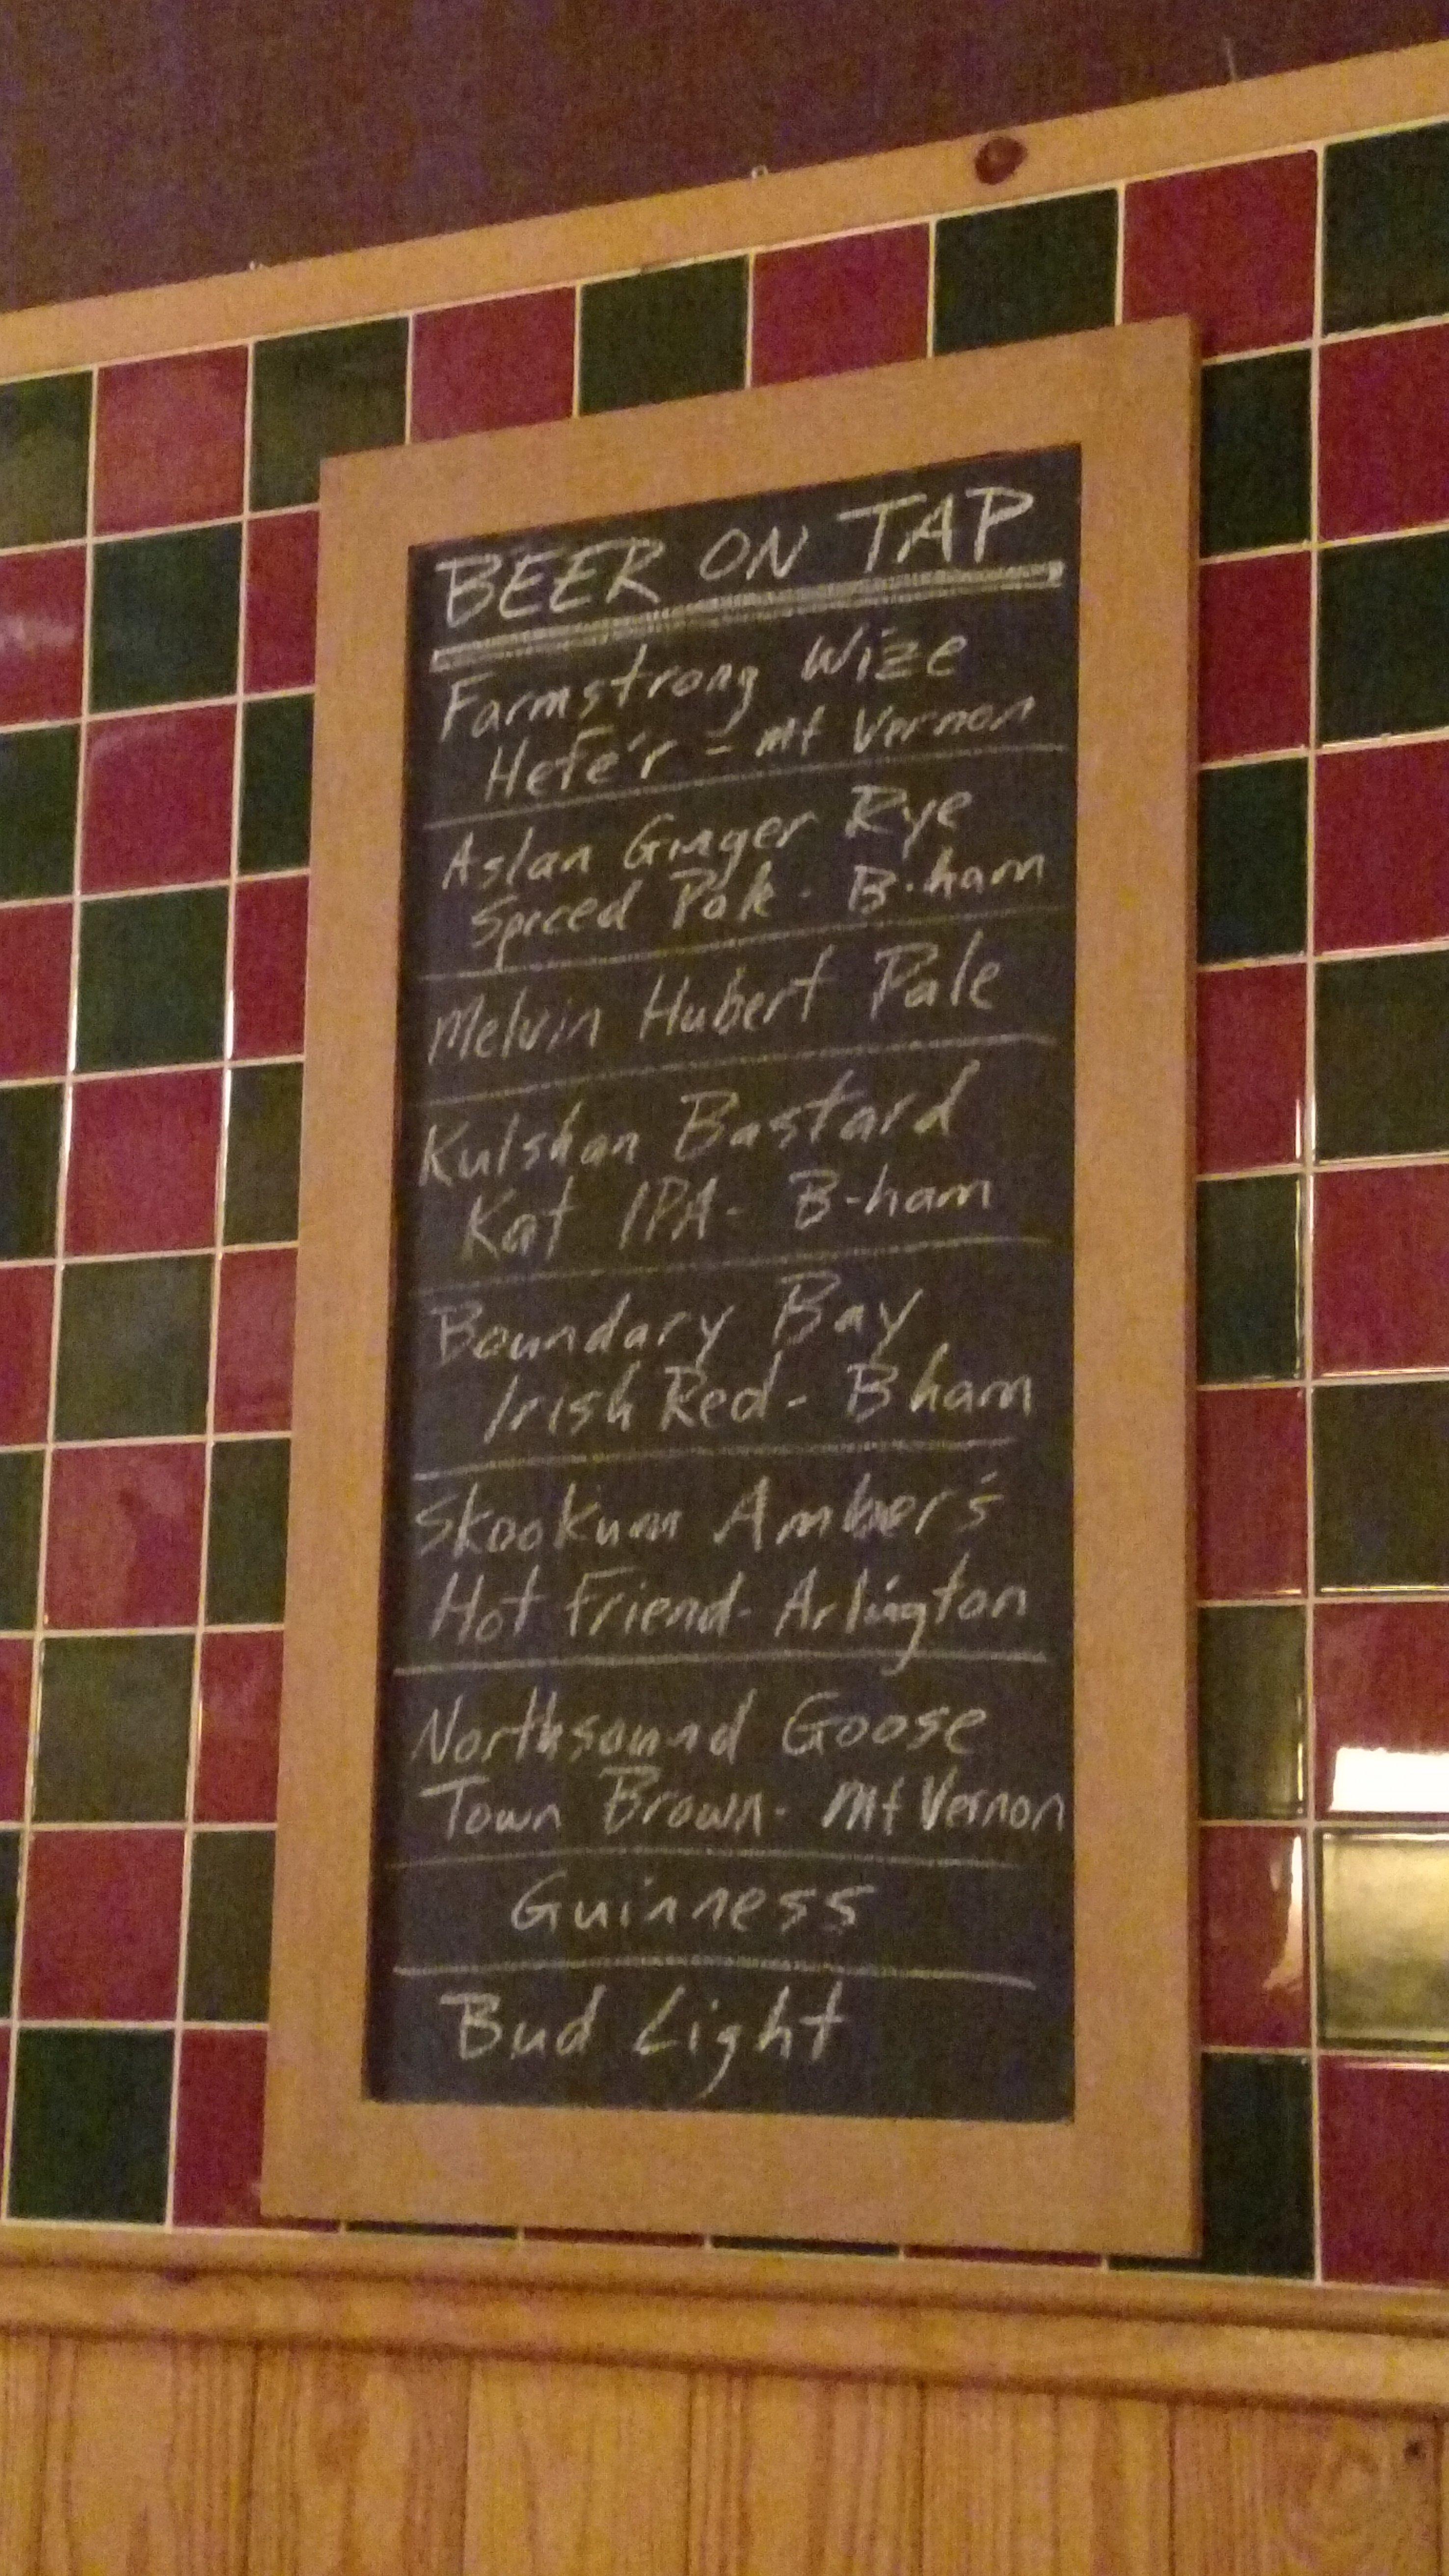 BEER ON TAP
Farmstrong Wize
Hefe'r - Mt Vernon
Aslan Ginger Rye
Spiced Pale - B-ham
Melvin Hubert Pale
Kulshan Bastard
Kat IPA - B-ham
Boundary Bay
Irish Red - Bham
Skookum Amber's
Hot Friend - Arlington
Northsound Goose
Town Brown - Mt Vernon
Guinness
Bud Light